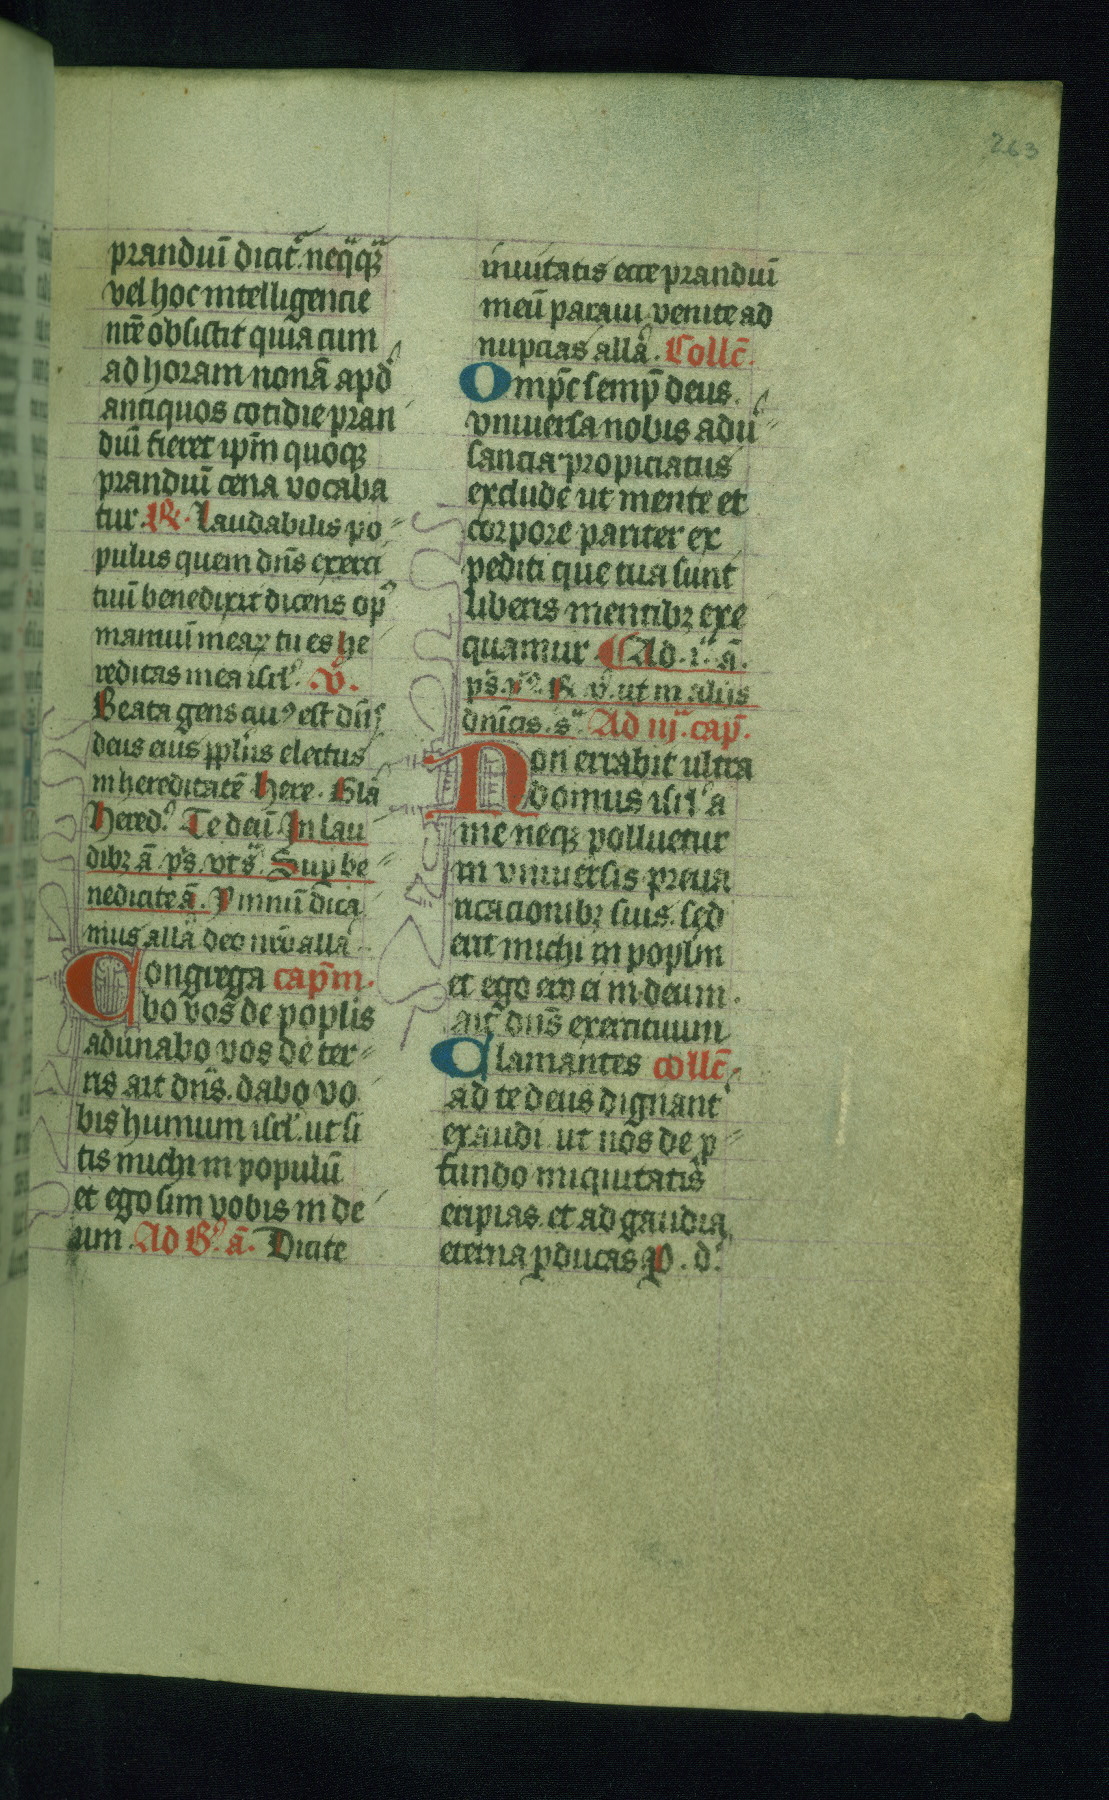 263
pranduī dicit᷑. neq̄q̄ꝫ
vel hoc intelligencie
nr̄e obsistit quia cum
ad horam nonā apd᷑
antiquos cotidie pran
duī fieret ip̄m quoqꝫ
pranduī cena vocaba
tur. R̷. Laudabilis po
pulus quem dn̄s exerci
tuū benedixit dicens op᷑
manuū meaꝝ tu es he
reditas mea isrl᷑. v᷑.
Beata gens cuiꝰ est dn̄s
deus eius ppl̄us electus
in hereditatē here. Glā
Hered᷑. Te deū In lau
dibꝫ ā ps̄. vt s᷑. Sup be
nedicite ā. Ymnū dica
mus allā deo nr̄o allā
Congrega cap̄m.
bo vos de poplis
adunabo vos de ter
ris ait dn̄s. dabo vo
bis humum isrl᷑. ut si
tis michi in populū
et ego sim vobis in de
um. Ad B᷑. ā. Dicite
inuitatis ecce pranduī
meū paraui venite ad
nupcias allā. Collc̄.
Omp̄c semp̄ deus.
vniuersa nobis adū
sancia propiciatus
exclude ut mente et
corpore pariter ex
pediti que tua sunt
liberis mentibꝫ exe
quamur ¶Ad. i᷑. ā.
ps̄. R̷. v᷑. ut in alijs
dn̄icis. s᷑. Ad iij᷑. cap̄.
Non errabit ultra
domus isrl᷑ a
me neqꝫ polluetur
in vniuersis preua
ricacionibꝫ suis. sed
erit michi in poplm
et ego ero ei in deum.
ait᷑ dn̄s exercituum
Clamantes collc̄.
ad te deus dignant᷑
exaudi. ut nos de ꝓ
fundo iniquitatis
eripias. et ad gaudia
eterna ꝑducas. P. d᷑.